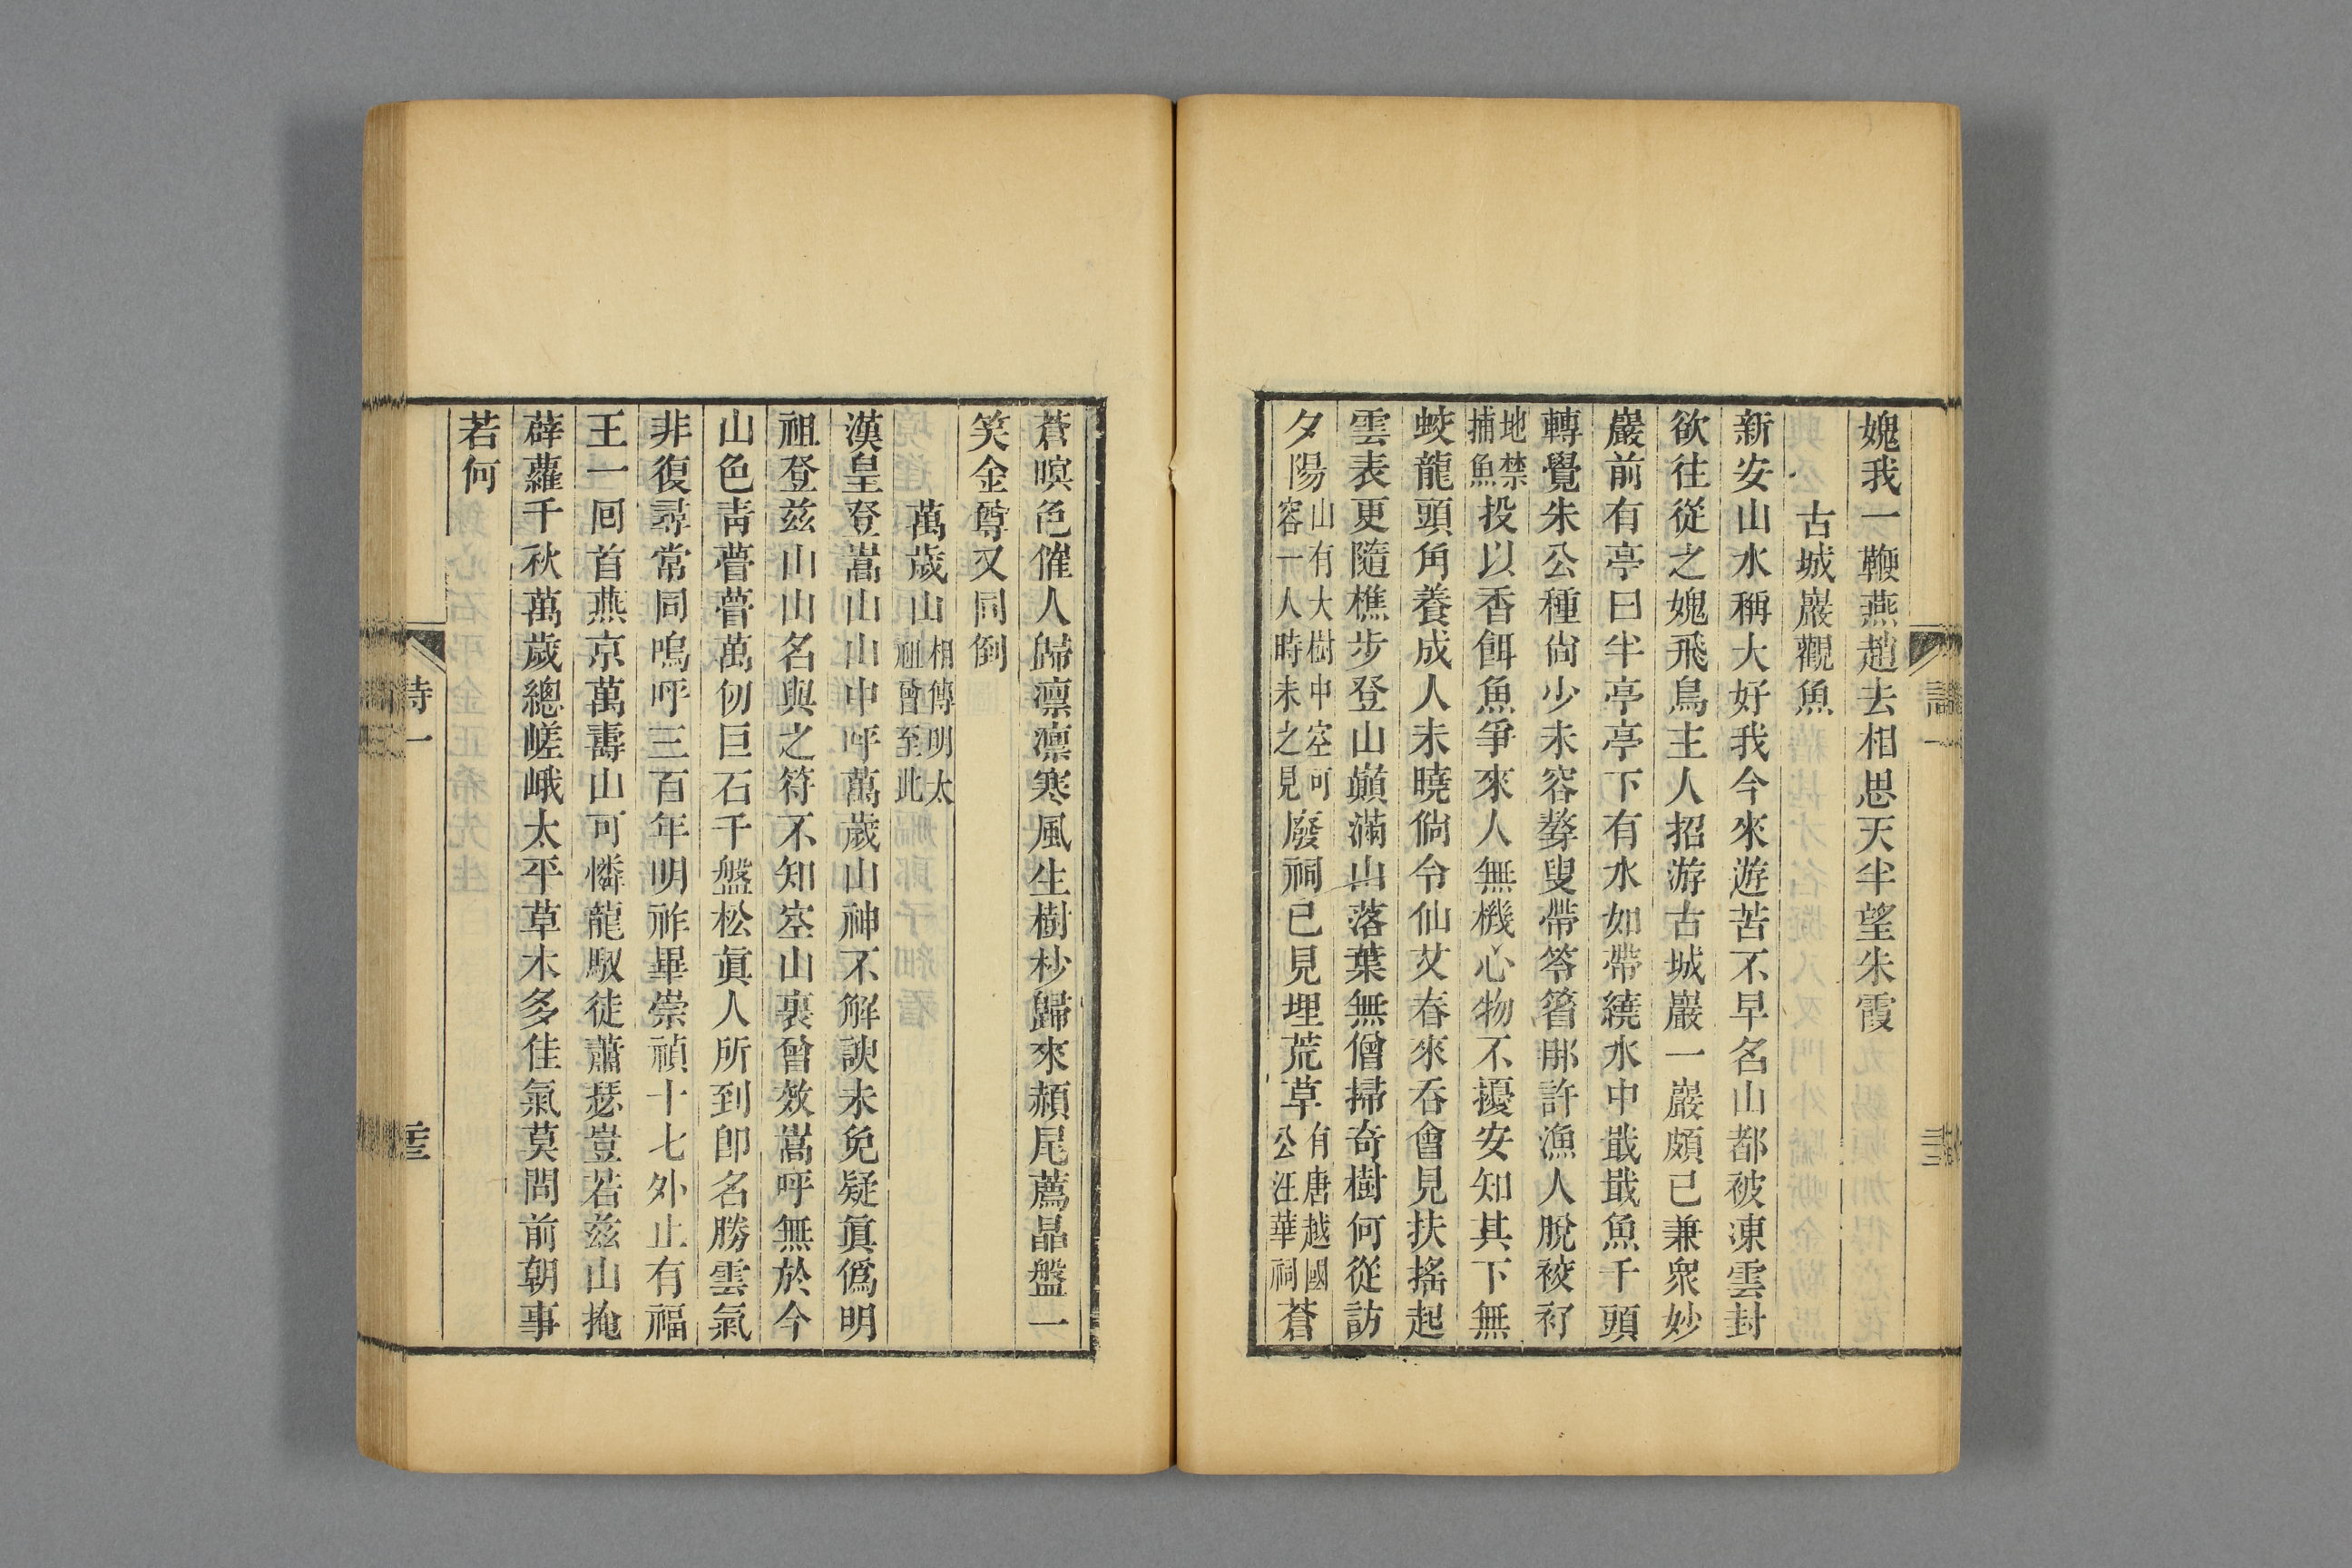 媿我一鞭燕趙去相思天半望朱霞
古城巖觀魚
新安山水稱大好我今來遊苦不早名山都被凍雲封
欲往從之媿飛鳥主人招游古城巖一巖頗已兼衆妙
巖前有亭曰半亭亭下有水如帶繞水中戢戢魚千頭
轉覺朱公種尙少未容䓝叟帶笭箵那許漁人脫襏襫
地禁捕魚投以香餌魚爭來人無機心物不擾安知其下無
蛟龍頭角養成人未曉倘令仙艾春來吞會見扶搖起
雲表更隨樵步登山巔滿山落葉無僧掃奇樹何從訪
夕陽山有大樹中空可容一人時未之見廢祠已見埋荒草有唐越國公汪華祠蒼
蒼暝色催人歸凛凛寒風生樹杪歸來頳尾薦晶盤一
笑金尊又同倒
萬歲山相傳明太祖曾至此
漢皇登嵩山山中呼萬歲山神不解諛未免疑眞僞明
祖登茲山山名與之符不知空山裏曾效嵩呼無於今
山色靑瞢瞢萬仞巨石千盤松眞人所到卽名勝雲氣
非復尋常同嗚呼三百年明祚畢崇禎十七外止有福
王一回首燕京萬壽山可憐龍馭徒蕭瑟豈若茲山掩
薜蘿千秋萬歲總嵯峨太平草木多佳氣莫問前朝事
若何
詩一